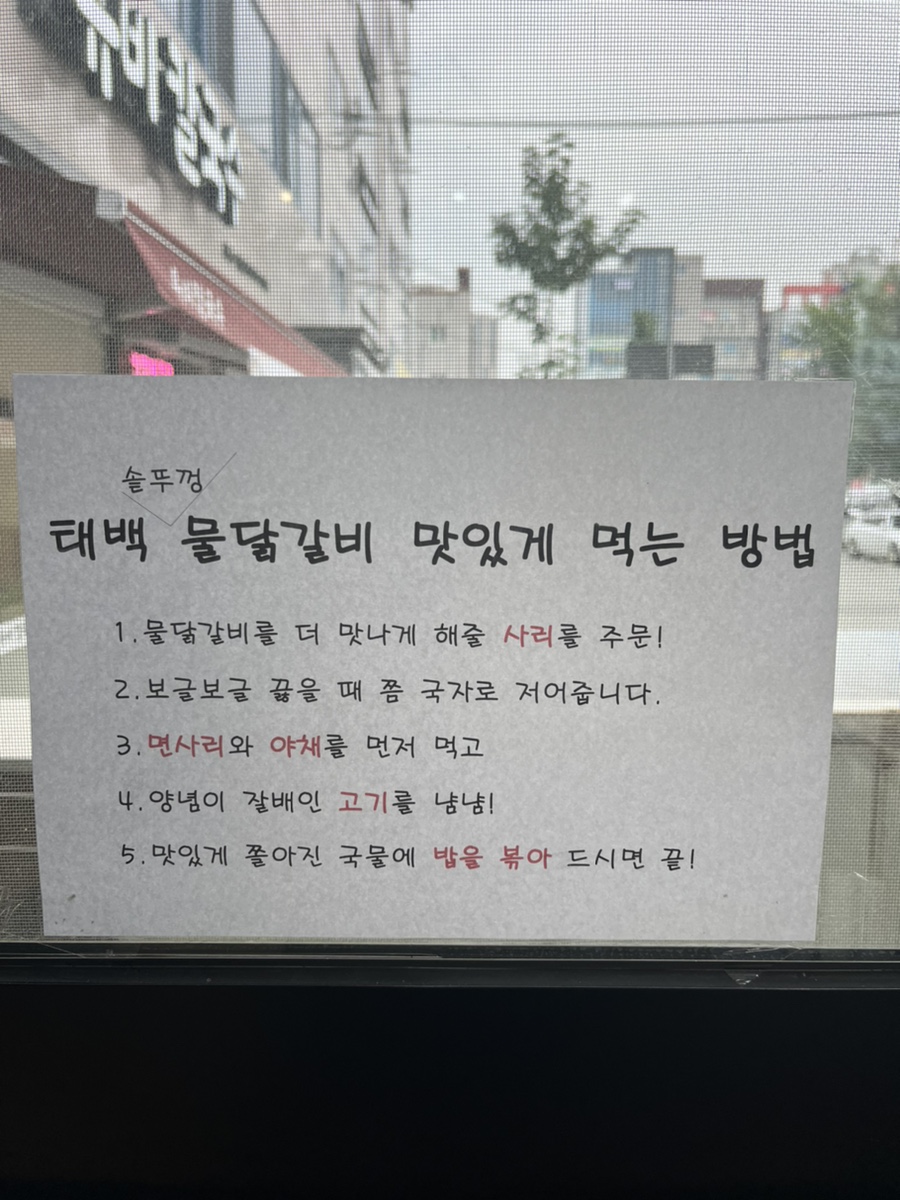 솥뚜껑
태백 물닭갈비 맛있게 먹는 방법
1.물닭갈비를 더 맛나게 해줄 사리를 주문!
2.보글보글 끓을 때 쯤 국자로 저어줍니다.
3.면사리와 야채를 먼저 먹고
4.양념이 잘배인 고기를 냠냠!
5.맛있게 쫄아진 국물에 밥을 볶아 드시면 끝!